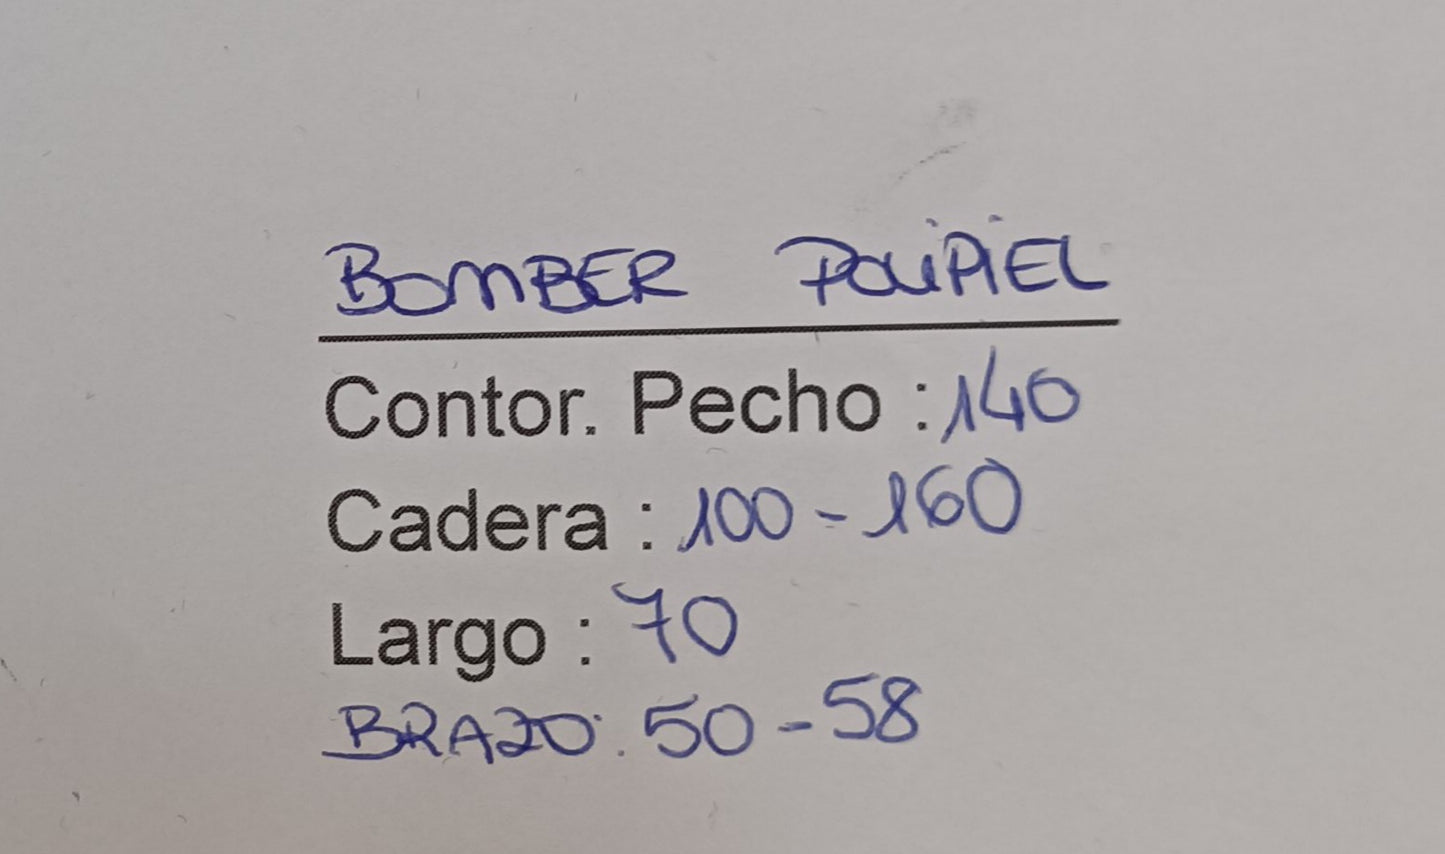 BOMBER POLIPIEL
Contor. Pecho : 140
Cadera : 100 - 160
Largo : 70
BRAZO: 50 - 58